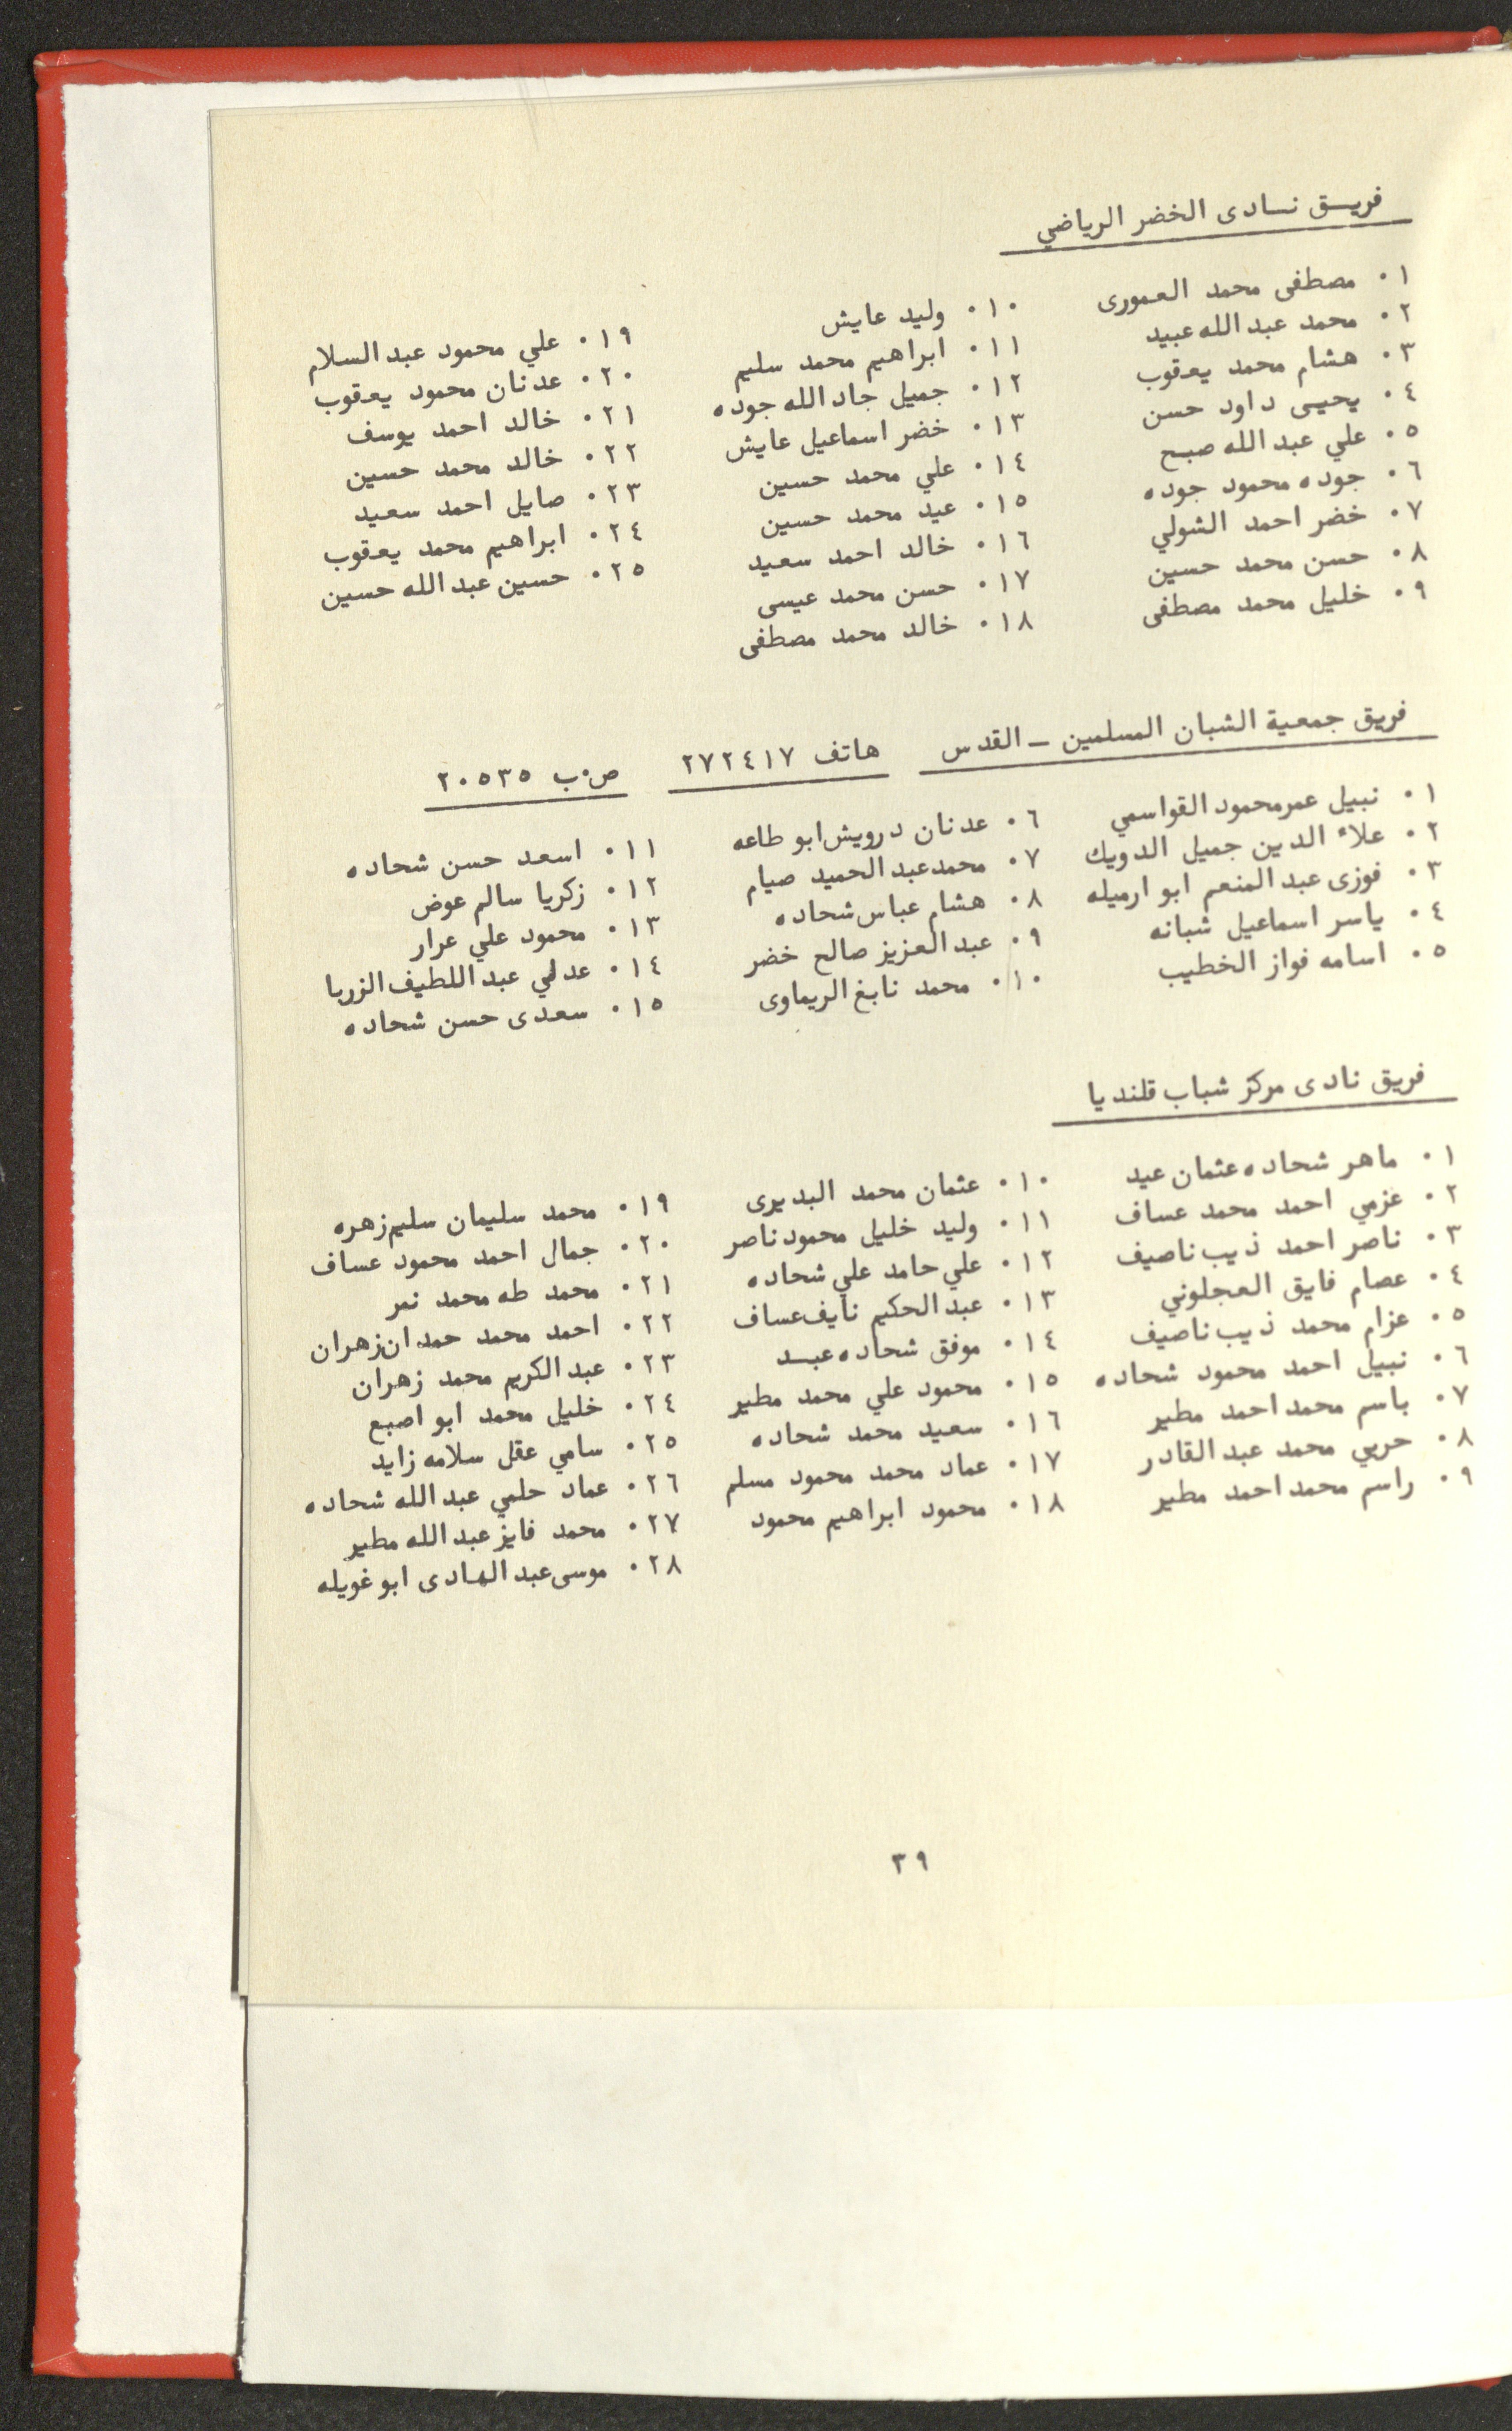 فريق نادى الخضر الرياضي
١٠ مصطفى محمد العمورى
٢٠ محمد عبد الله عبيد
٣٠ هشام محمد يعقوب
٤٠ يحيى داود حسن
٥٠ علي عبد الله صبح
٦٠ جوده محمود جوده
٧٠ خضر احمد الشولي
٨٠ حسن محمد حسين
٩٠ خليل محمد مصطفى
١٠٠ وليد عايش
١١٠ ابراهيم محمد سليم
١٢٠ جميل جاد الله جوده
١٣٠ خضر اسماعيل عايش
١٤٠ علي محمد حسين
١٥٠ عيد محمد حسين
١٦٠ خالد احمد سعيد
١٧٠ حسن محمد عيسى
١٨٠ خالد محمد مصطفى
١٩٠ علي محمود عبد السلام
٢٠٠ عدنان محمود يعقوب
٢١٠ خالد احمد يوسف
٢٢٠ خالد محمد حسين
٢٣٠ صايل احمد سعيد
٢٤٠ ابراهيم محمد يعقوب
٢٥٠ حسين عبد الله حسين
فريق جمعية الشبان المسلمين - القدس هاتف ٢٧٢٤١٧ ص٠ب ٢٠٥٣٥
١٠ نبيل عمر محمود القواسمي
٢٠ علاء الدين جميل الدويك
٣٠ فوزى عبد المنعم ابو ارميله
٤٠ ياسر اسماعيل شبانه
٥٠ اسامه فواز الخطيب
٦٠ عدنان درويش ابو طاعه
٧٠ محمد عبد الحميد صيام
٨٠ هشام عباس شحاده
٩٠ عبد العزيز صالح خضر
١٠٠ محمد نابغ الريماوى
١١٠ اسعد حسن شحاده
١٢٠ زكريا سالم عوض
١٣٠ محمود علي عرار
١٤٠ عدلي عبد اللطيف الزربا
١٥٠ سعدى حسن شحاده
فريق نادى مركز شباب قلنديا
١٠ ماهر شحاده عثمان عيد
٢٠ عزمي احمد محمد عساف
٣٠ ناصر احمد ذيب ناصيف
٤٠ عصام فايق العجلوني
٥٠ عزام محمد ذيب ناصيف
٦٠ نبيل احمد محمود شحاده
٧٠ باسم محمد احمد مطير
٨٠ حربي محمد عبد القادر
٩٠ راسم محمد احمد مطير
١٠٠ عثمان محمد البديرى
١١٠ وليد خليل محمود ناصر
١٢٠ علي حامد علي شحاده
١٣٠ عبد الحكيم نايف عساف
١٤٠ موفق شحاده عبد
١٥٠ محمود علي محمد مطير
١٦٠ سعيد محمد شحاده
١٧٠ عماد محمد محمود مسلم
١٨٠ محمود ابراهيم محمود
١٩٠ محمد سليمان سليم زهره
٢٠٠ جمال احمد محمود عساف
٢١٠ محمد طه محمد نمر
٢٢٠ احمد محمد حمدان زهران
٢٣٠ عبد الكريم محمد زهران
٢٤٠ خليل محمد ابو اصبع
٢٥٠ سامي عقل سلامه زايد
٢٦٠ عماد حلمي عبد الله شحاده
٢٧٠ محمد فايز عبد الله مطير
٢٨٠ موسى عبد الهادى ابو غويله
٣٩